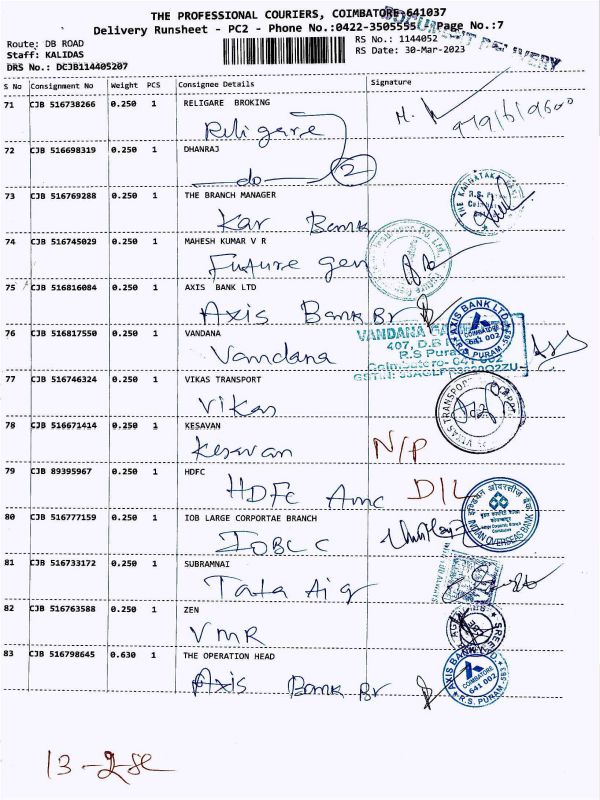 THE PROFESSIONAL COURIERS, COIMBATORE-641037
Delivery Runsheet - PC2 - Phone No.:0422-3505555 Page No.:7
Route: DB ROAD RS No.: 1144052
Staff: KALIDAS RS Date: 30-Mar-2023
DRS No.: DCJB114405207
S No Consignment No Weight PCS Consignee Details Signature
71 CJB 516738266 0.250 1 RELIGARE BROKING
Religare
72 CJB 516698319 0.250 1 DHANRAJ
do 2
73 CJB 516769288 0.250 1 THE BRANCH MANAGER
Kar Bank
74 CJB 516745029 0.250 1 MAHESH KUMAR V R
Future gen
75 CJB 516816084 0.250 1 AXIS BANK LTD
Axis Bank Br
AXIS BANK LTD. COIMBATORE 641 002 R.S. PURAM
76 CJB 516817550 0.250 1 VANDANA
Vandana
VANDANA
407, D.B
R.S Puram
77 CJB 516746324 0.250 1 VIKAS TRANSPORT
Vikas
VIKAS TRANSPORT
78 CJB 516671414 0.250 1 KESAVAN
Kesavan N/P
79 CJB 89395967 0.250 1 HDFC
HDFC Amc D/L
80 CJB 516777159 0.250 1 IOB LARGE CORPORTAE BRANCH
IOBLC
INDIAN OVERSEAS BANK
81 CJB 516733172 0.250 1 SUBRAMNAI
Tata Aig
82 CJB 516763588 0.250 1 ZEN
VMR
83 CJB 516798645 0.630 1 THE OPERATION HEAD
Axis Bank Br
AXIS BANK LTD. COIMBATORE 641 002 R.S. PURAM